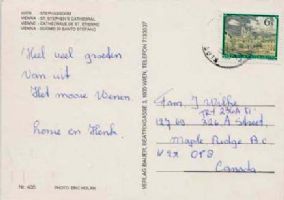 WIEN - STEPHANSDOM
VIENNA - ST. STEPHEN'S CATHEDRAL
VIENNE - CATHEDRALE DE ST. ETIENNE
VIENNA - DUOMO DI SANTO STEFANO
Heel veel groeten
Van uit
Het mooie Wenen.
en Henk.
Nr. 405
PHOTO: ERIC
VERLAG BAUER, BEATRIXGASSE 3, 1030 WIEN, TELEFON
6
Fam. J
127 69 226 A Street
Maple Ridge B.C
V2X
Canada